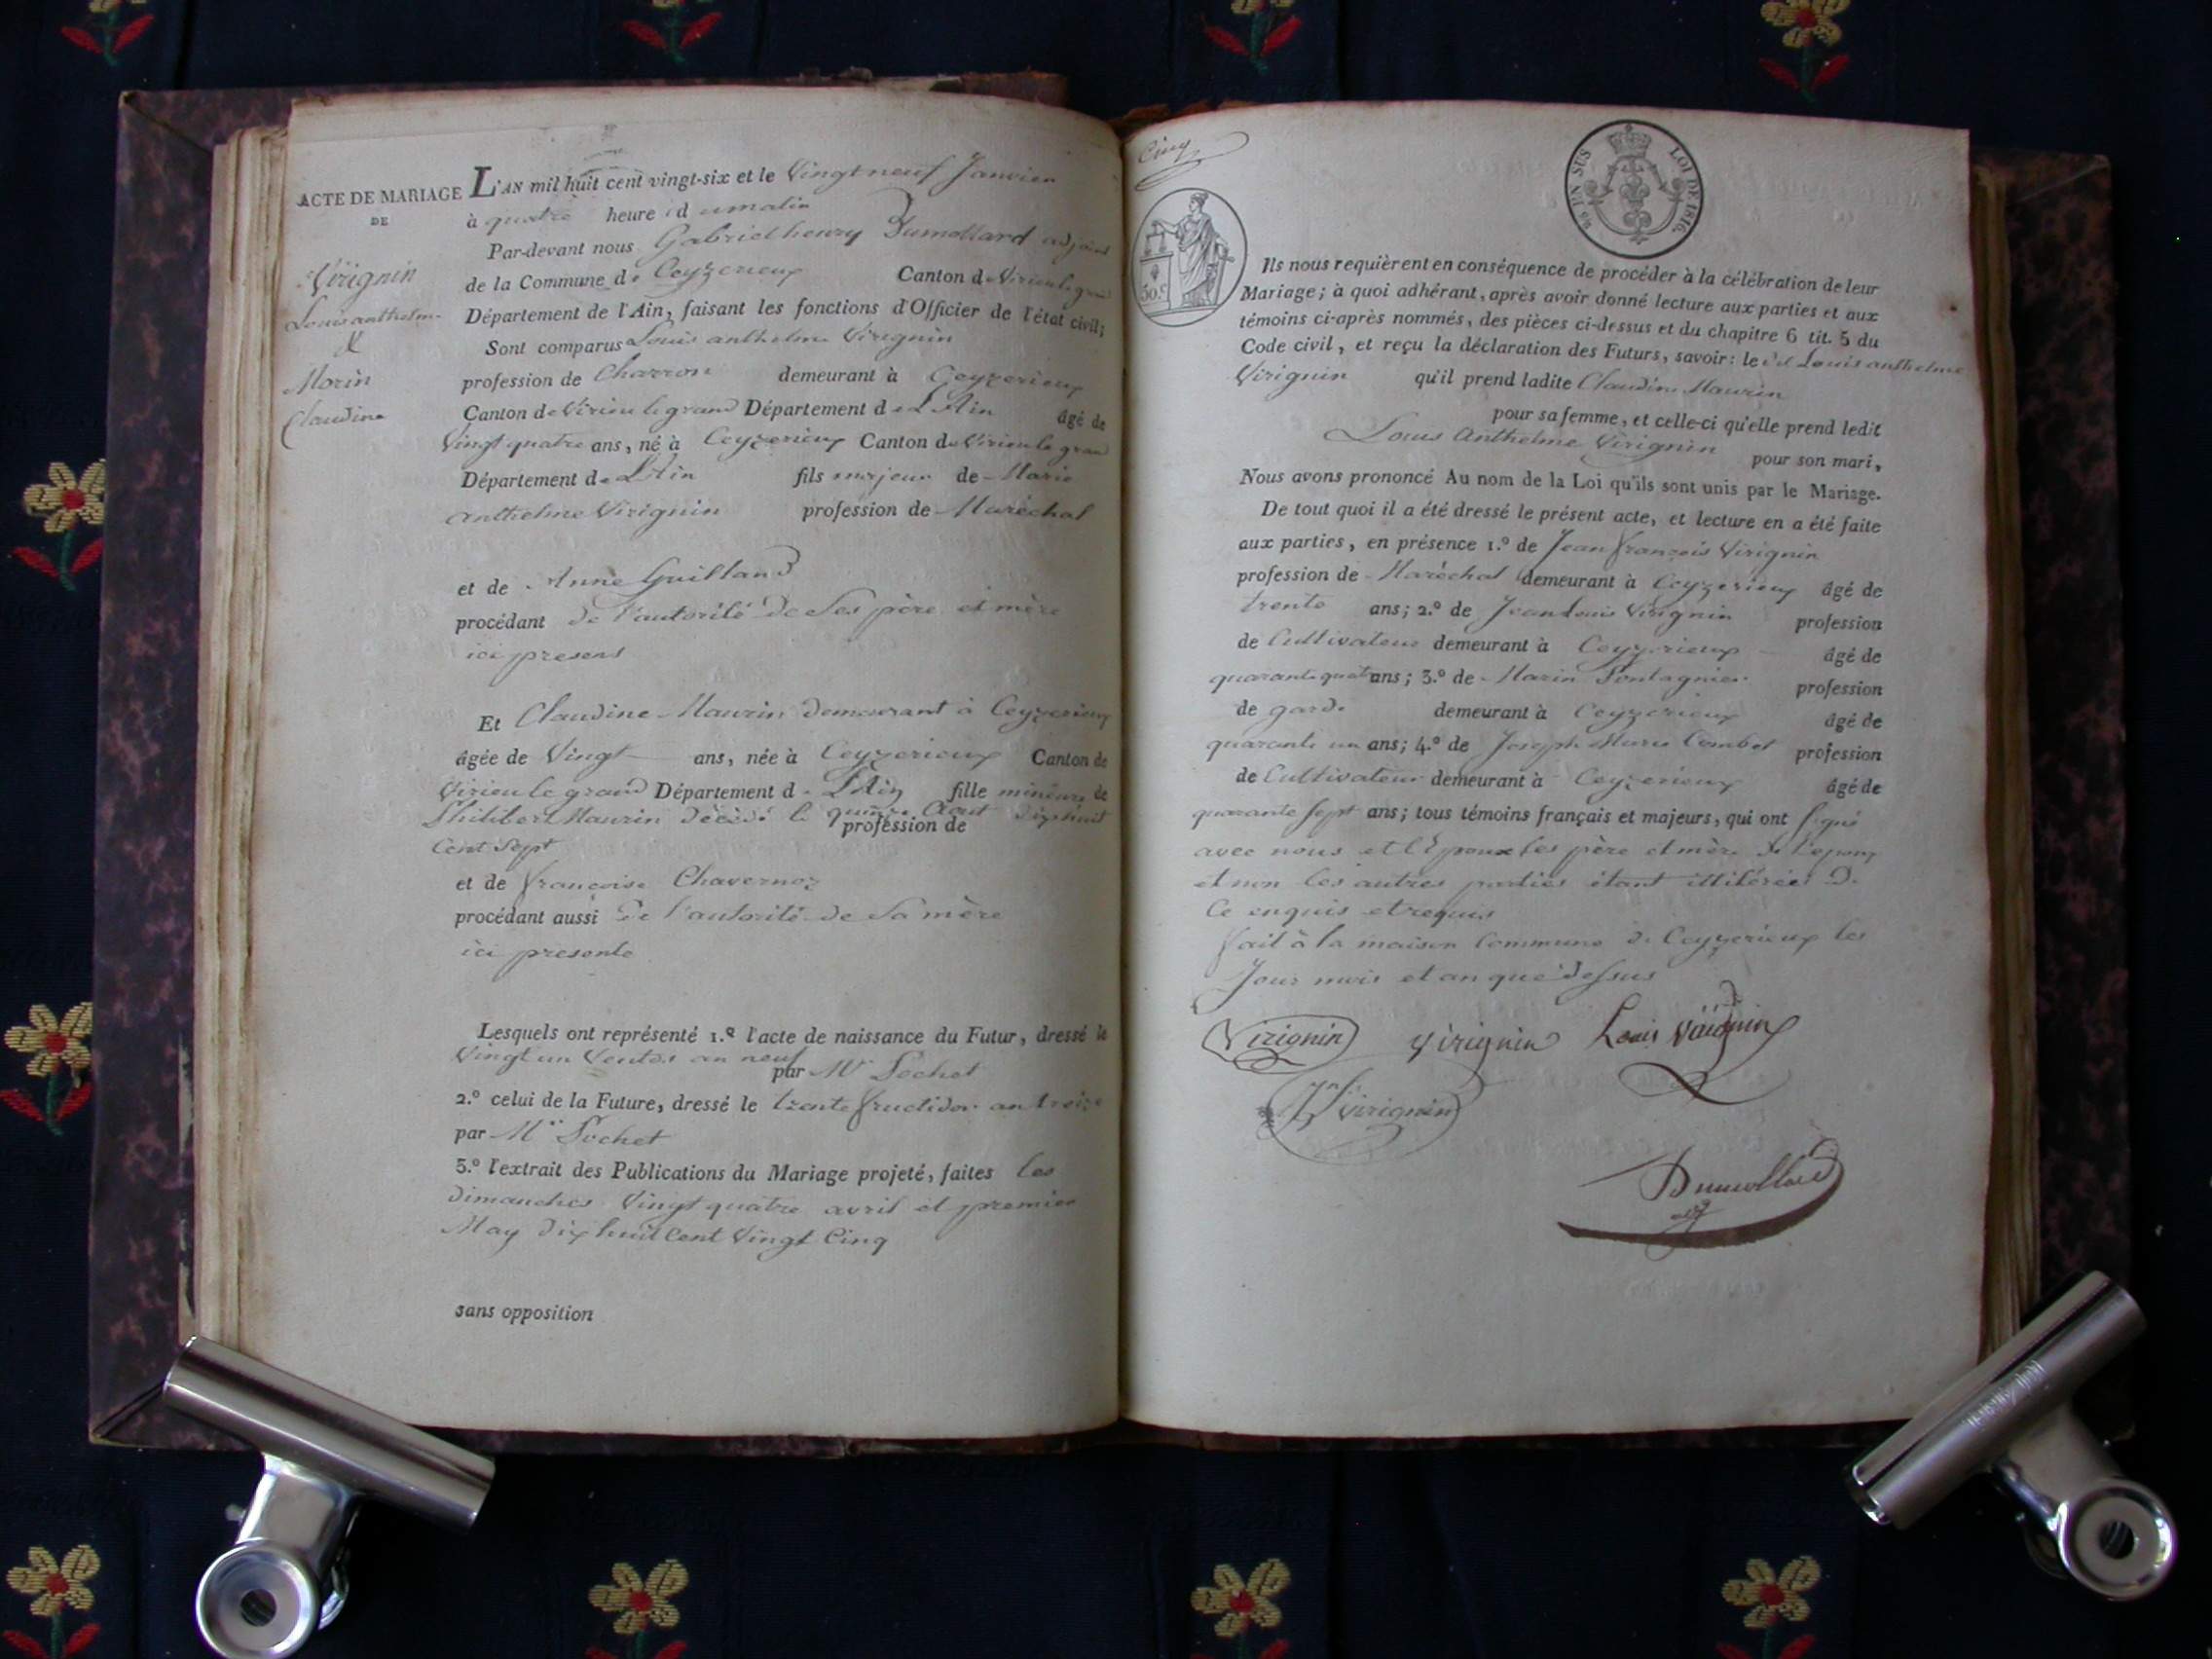 ACTE DE MARIAGE
DE
Virignin
Louis anthelme
&
Morin
Claudine
L'AN mil huit cent vingt-six et le Vingt neuf Janvier
à quatre heure du matin
Par-devant nous Gabriel henry Dumollard adjoint
de la Commune de Ceyzerieux Canton de Virieu le grand
Département de l'Ain, faisant les fonctions d'Officier de l'état civil;
Sont comparus Louis anthelme Virignin
profession de Charron demeurant à Ceyzerieux
Canton de Virieu le grand Département de L'Ain âgé de
Vingt quatre ans, né à Ceyzerieux Canton de Virieu le grand
Département de L'Ain fils majeur de Marie
anthelme Virignin profession de Maréchal
et de Anne Guilland
procédant de l'autorité de Ses père et mère
ici presens
Et Claudine Maurin demeurant à Ceyzerieux
âgée de Vingt ans, née à Ceyzerieux Canton de
Virieu le grand Département de L'Ain fille mineure de
Philibert Maurin décédé le quinze Aout dixhuit
profession de
Cent Sept
et de françoise Chavernoz
procédant aussi de l'autorité de Sa mère
ici presente
Lesquels ont représenté 1.º l'acte de naissance du Futur, dressé le
Vingt un Ventose an neuf
par Mr Pochet
2.º celui de la Future, dressé le trente fructidor an treize
par Mr Pochet
3.º l'extrait des Publications du Mariage projeté, faites les
dimanches Vingt quatre avril et premier
May dix huit Cent Vingt Cinq
sans opposition
Cinq
50 c.
EN SUS
LOI DE 1816.
Ils nous requièrent en conséquence de procéder à la célébration de leur
Mariage; à quoi adhérant, après avoir donné lecture aux parties et aux
témoins ci-après nommés, des pièces ci-dessus et du chapitre 6 tit. 5 du
Code civil, et reçu la déclaration des Futurs, savoir: le dit Louis anthelme
Virignin qu'il prend ladite Claudine Maurin
pour sa femme, et celle-ci qu'elle prend ledit
Louis Anthelme Virignin
pour son mari,
Nous avons prononcé Au nom de la Loi qu'ils sont unis par le Mariage.
De tout quoi il a été dressé le présent acte, et lecture en a été faite
aux parties, en présence 1.º de Jean françois Virignin
profession de Maréchal demeurant à Ceyzerieux âgé de
trente ans; 2.º de Jean Louis Virignin profession
de Cultivateur demeurant à Ceyzerieux âgé de
quarante quatre ans; 3.º de Marin profession
de garde demeurant à Ceyzerieux âgé de
quarante un ans; 4.º de Joseph Marie Combet profession
de Cultivateur demeurant à Ceyzerieux âgé de
quarante Sept ans; tous témoins français et majeurs, qui ont Signé
avec nous et L'Epoux les père et mère de l'epoux
et non les autres parties étant illiterées de
Ce enquis et requis
fait à la maison Commune de Ceyzerieux les
Jour mois et an que dessus
Virignin Virignin Louis Virignin
Jn f. Virignin
Dumollard
adj